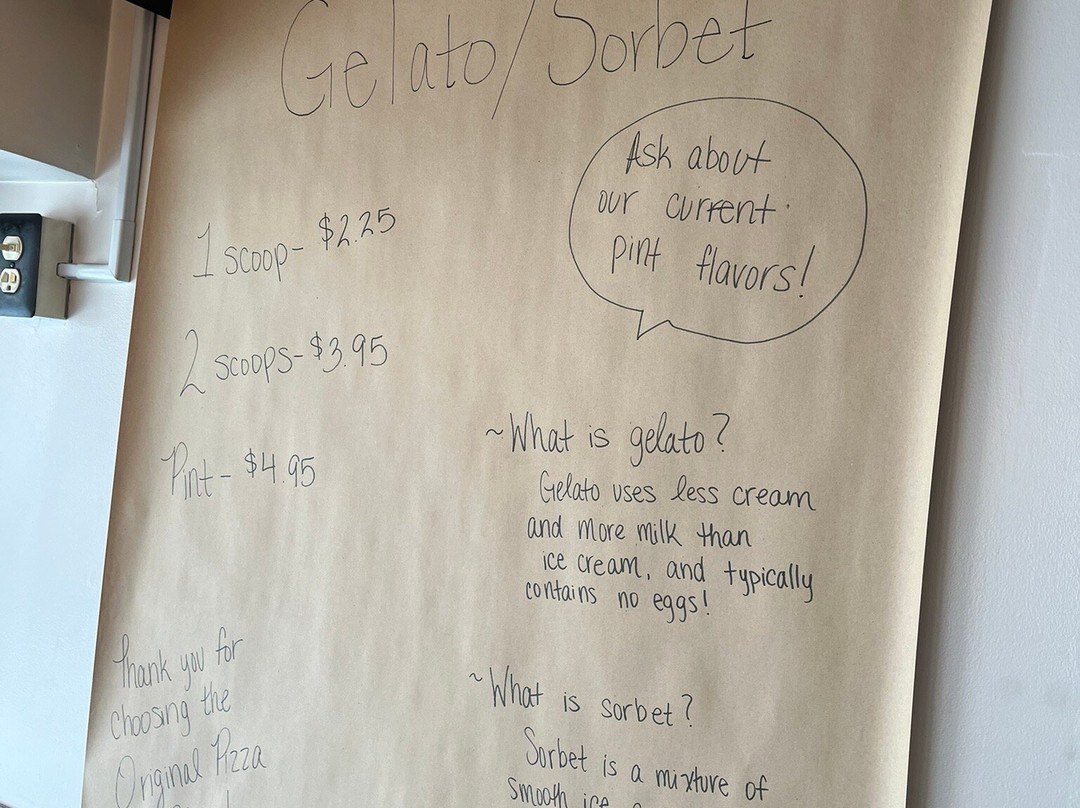 Gelato/Sorbet
Ask about
our current
pint flavors!
1 scoop- $2.25
2 scoops- $3.95
Pint- $4.95
~What is gelato?
Gelato uses less cream
and more milk than
ice cream, and typically
contains no eggs!
Thank you for
choosing the
Original Pizza
~What is sorbet?
Sorbet is a mixture of
smooth ice